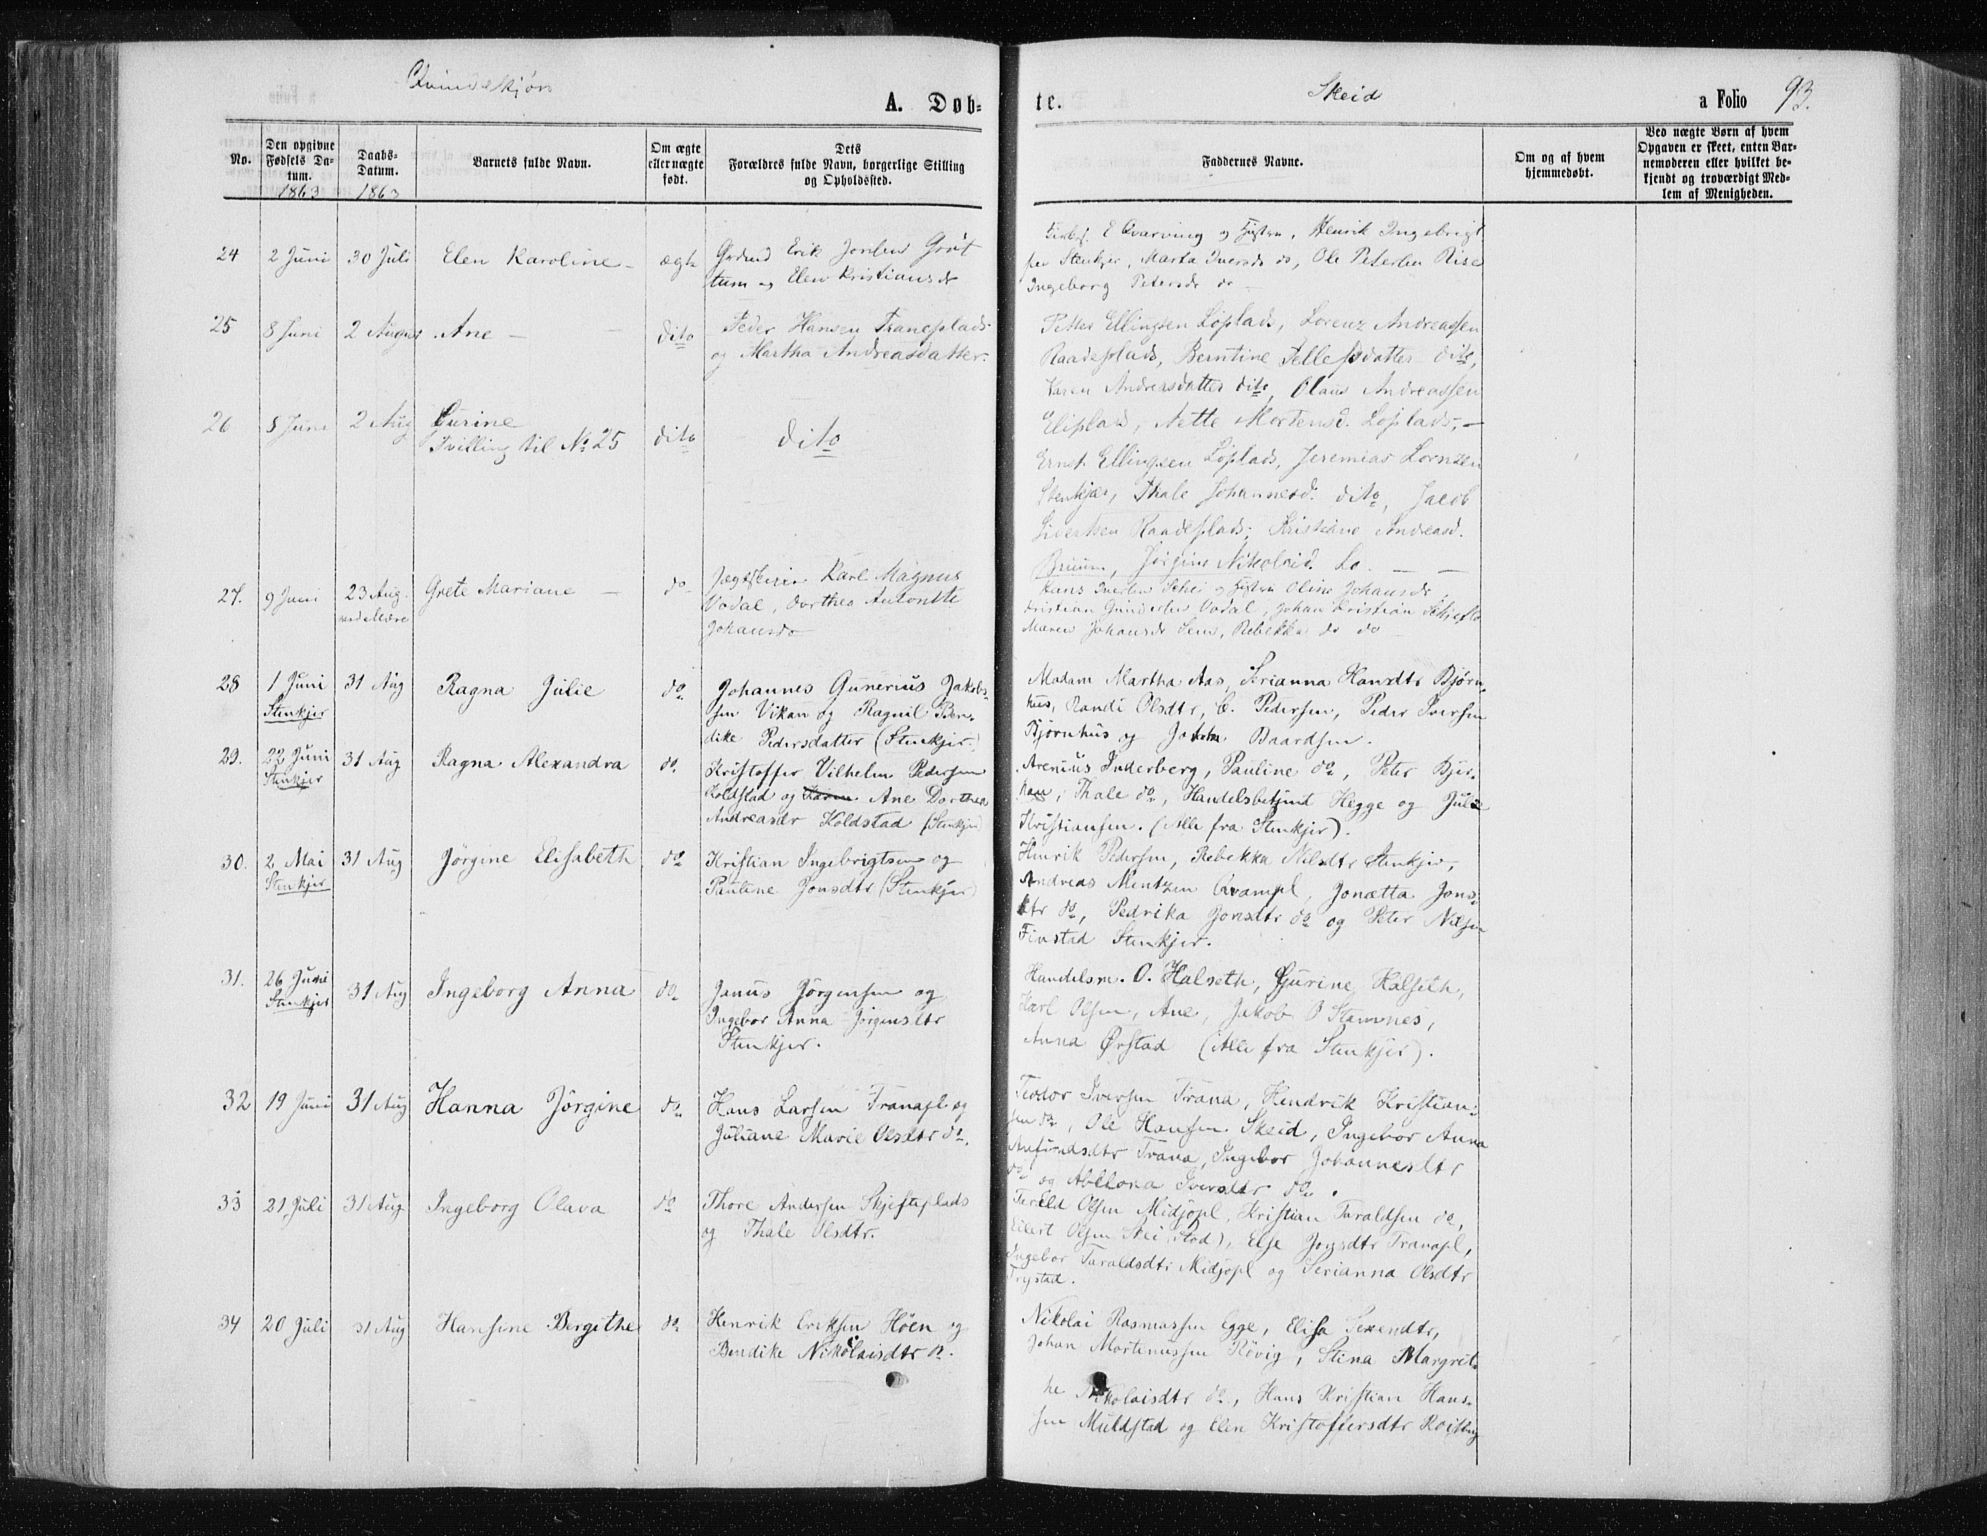 Qvindekjøn
Skeid
A. Døb-
te.
a Folio 93.
No.
Den opgivne Fødsels Datum. 1863
Daabs-Datum. 1863
Barnets fulde Navn.
Om ægte eller uægte født.
Dets Forældres fulde Navn, borgerlige Stilling og Opholdssted.
Faddernes Navne.
Om og af hvem hjemmedøbt.
Ved uægte Børn af hvem Opgaven er skeet, enten Barnemoderen eller hvilket bekjendt og troværdigt Medlem af Menigheden.
24 2 Juni 30 Juli Elen Karoline ægte
Erik Grøt
tum og Elen Kristiansdr
E Qvarving og Hustru, Henrik Ingebrigt
sen Stenkjer, Marta Iversdr do, Ole Petersen Rise
Ingeborg Petersdr do
25 8 Juni 2 August Ane dito
Peder Hansen Traneplads
og Martha Andreasdatter.
Petter Ellingsen Løplads, Lorenz Andreassen
Raadeplads, Berntine dito,
Karen Andreasdatter dito, Olaus Andreassen
26 8 Juni 2 Aug Gurine
Tvilling til No 25 dito
dito
Nette Mortensd. Løplads,
Ernst Ellingsen Løplads, Jeremias Lornzen
Stenkjer, Thale Johannesd. dito, Jacob
Sivertsen Raadeplads, Kristiane Andreasd.
27. 9 Juni 23 Aug. Grete Mariane do
Karl Magnus
Vodal, Dorthea Antonette
Johansdr
Hans og Hustru Oline Johansdr,
Kristian Gundersen Vodal, Johan Kristian
Maren Johansdr Rebekka do do
28 1 Juni
Stenkjer 31 Aug Ragna Julie do
Johannes Gunerius Jakob-
sen Vikan og Ragnil Ben-
dike Pedersdatter (Stenkjer.)
Madam Martha Aas, Serianna Hansdtr Bjørn-
hus, Randi Olsdtr, C. Pedersen, Peder Iversen
Bjørnhus og Baardsen.
29. 22 Juni
Stenkjer 31 Aug Ragna Alexandra do
Kristoffer Vilhelm Pedersen
Koldstad og Ane Dorthea
Andreasdr Koldstad (Stenkjer)
Arenius Inderberg, Pauline do, Peter Bjer-
kan, Thale do, Handelsbetjent Hegge og Julie
Kristiansen. (Alle fra Stenkjer).
30. 2 Mai
Stenkjer 31 Aug Jörgine Elisabeth do
Kristian Ingebrigtsen og
Pauline Jonsdtr (Stenkjer)
Henrik Pedersen, Rebekka Nilsdtr Stenkjer,
Andreas Mentzen Qvampl, Jonætta Jons-
dtr do, Pedrika Jonsdtr do og Peter Nilsen
Finstad Stenkjer.
31. 26 Juni
Stenkjer 31 Aug Ingeborg Anna do
Janus Jörgensen og
Ingebor Anna Jörgensdtr
Stenkjer.
Handelsm. O. Halseth, Gjurine Halseth,
Karl Olsen, Ane, Jakob O Stamnes,
Anna Ørstad (Alle fra Stenkjer).
32 19 Juni 31 Aug Hanna Jörgine do
Hans Larsen Tranapl og
Juliane Marie Olsdtr do.
Teodor Iversen Trana, Hendrik Kristian-
sen do, Ole Hansen Skeid, Ingebor Anna
Anfindsdtr Trana, Ingebor Johannesdtr
do og Abelona Iversdtr do.
33 21 Juli 31 Aug Ingeborg Olava do
Thore Andersen Skjefteplads
og Thale Olsdtr.
Tarald Olsen Midjopl, Kristian Taraldsen do,
Eilert Olsen Else Tranapl,
Ingebor Taraldsdtr Midjopl og Serianna Olsdtr
34 20 Juli 31 Aug Hansine Bergithe do
Henrik Eriksen Höen og
Bendike Nikolaisdtr do.
Nikolai Rasmussen Egge, Elisa
Johan Mortenussen Rövig, Stina Margret-
he Nikolaisdtr do, Hans Kristian Hans-
sen Muldstad og Elen Kristoffersdtr